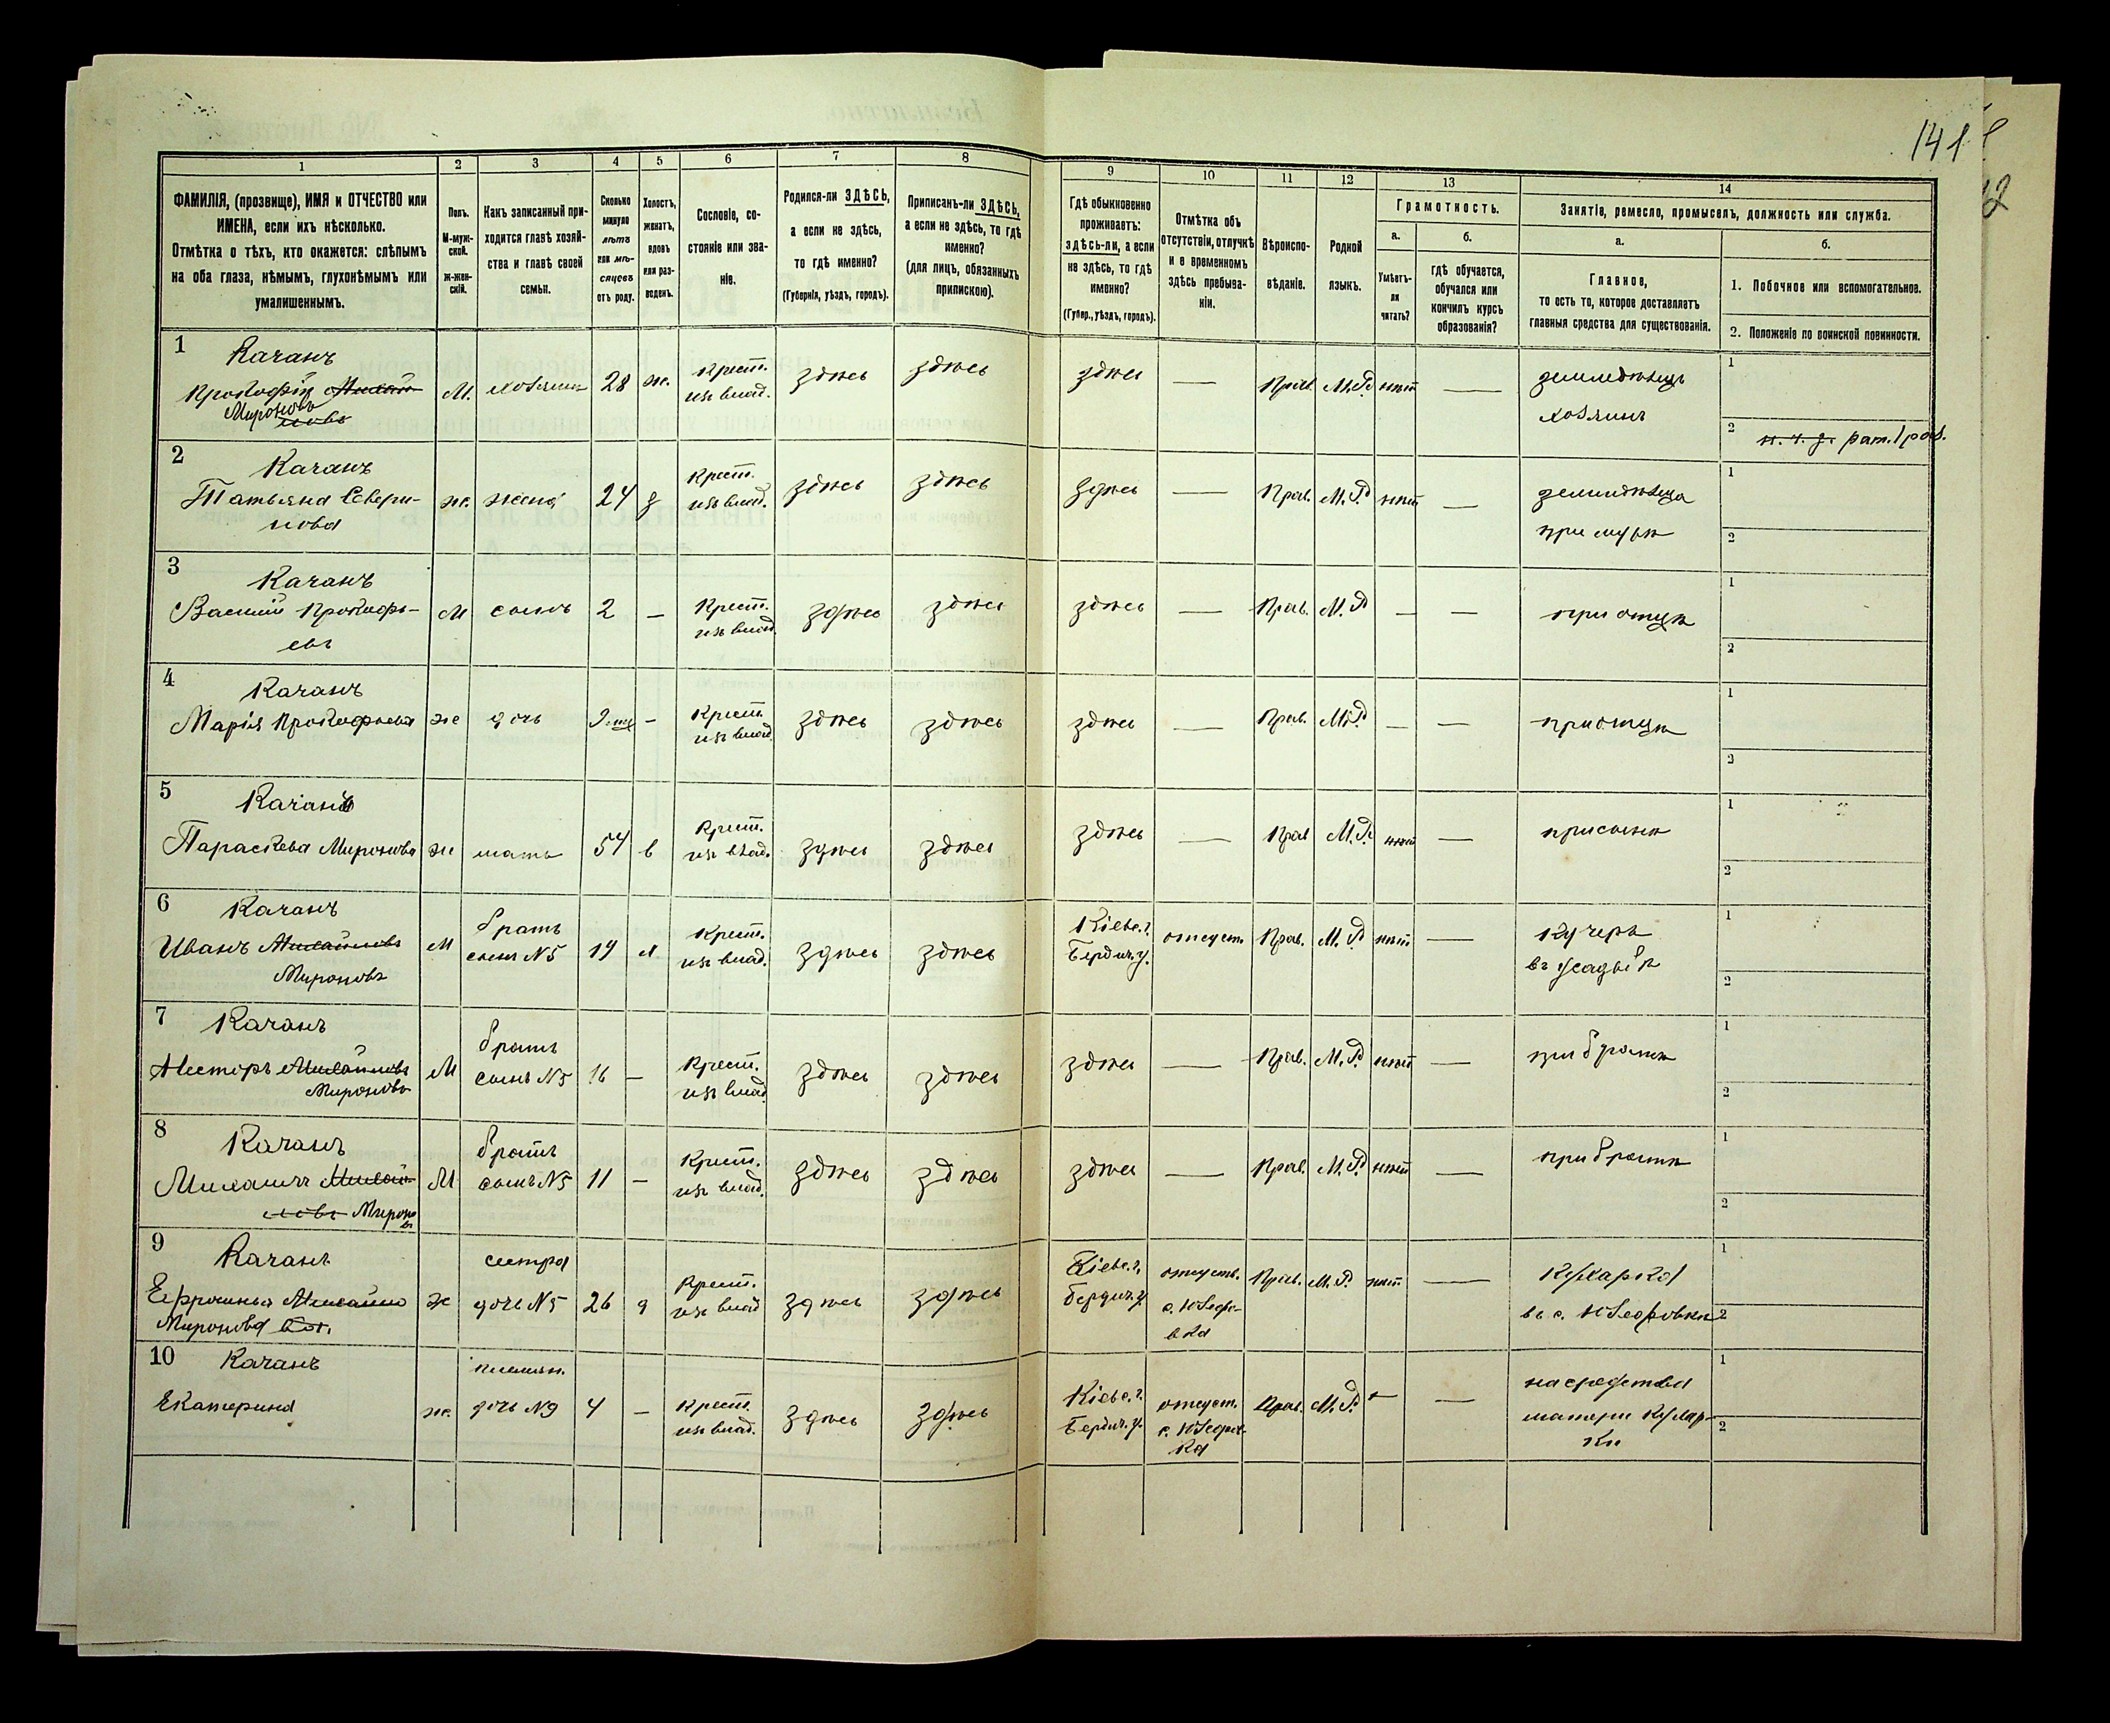 141
1
2
3
4
5
6
7
8
9
10
11
12
13
14
ФАМИЛІЯ, (прозвище), ИМЯ и ОТЧЕСТВО или
ИМЕНА, если ихъ нѣсколько.
Отмѣтка о тѣхъ, кто окажется: слѣпымъ
на оба глаза, нѣмымъ, глухонѣмымъ или
умалишеннымъ.
Полъ.
М-муж-
ской.
Ж-жен-
скій.
Какъ записанный при-
ходится главѣ хозяй-
ства и главѣ своей
семьи.
Сколько
минуло
лѣтъ
или мѣ-
сяцевъ
отъ роду.
Холостъ,
женатъ,
вдовъ
или раз-
веденъ.
Сословіе, со-
стояніе или зва-
ніе.
Родился-ли ЗДѢСЬ,
а если не здѣсь,
то гдѣ именно?
(Губернія, уѣздъ, городъ).
Приписанъ-ли ЗДѢСЬ,
а если не здѣсь, то гдѣ
именно?
(для лицъ, обязанныхъ
припискою).
Гдѣ обыкновенно
проживаетъ:
здѣсь-ли, а если
не здѣсь, то гдѣ
именно?
(Губер., уѣздъ, городъ).
Отмѣтка объ
отсутствіи, отлучкѣ
и о временномъ
здѣсь пребыва-
ніи.
Вѣроиспо-
вѣданіе.
Родной
языкъ.
Грамотность.
а.
Умѣетъ-
ли
читать?
б.
гдѣ обучается,
обучался или
кончилъ курсъ
образованія?
Занятіе, ремесло, промыселъ, должность или служба.
а.
Главное,
то есть то, которое доставляетъ
главныя средства для существованія.
б.
1. Побочное или вспомогательное.
2. Положеніе по воинской повинности.
1 Качанъ
Прокофій Михай-
Мироновъ
ловъ
М. хозяинъ 28 ж. Крест. из влад. здѣсь здѣсь здѣсь — Прав. М.Р. нѣтъ —
земледѣлецъ
хозяинъ
1
2 н. ч. з. рат. 1 раз.
2 Качанъ
Татьяна Севери-
нова
ж. жена 24 з Крест. из влад. здѣсь здѣсь здѣсь — Прав. М.Р. нѣтъ —
земледѣлица
при мужѣ
1
2
3 Качанъ
Василій Прокофь-
евъ
М сынъ 2 — Крест. из влад. здѣсь здѣсь здѣсь — Прав. М.Р. — — при отцѣ
1
2
4 Качанъ
Марія Прокофьева ж дочь 9 мц — Крест. из влад. здѣсь здѣсь здѣсь — Прав. М.Р. — — при отцѣ
1
2
5 Качанъ
Параскева Миронова ж мать 54 в Крест. из влад. здѣсь здѣсь здѣсь — Прав М.Р. нѣтъ — при сынѣ
1
2
6 Качанъ
Иванъ Михайловъ
Мироновъ
М братъ
сынъ N5 19 х Крест. из влад. здѣсь здѣсь Кіевс. г.
Бердич. у. отсутст. Прав. М.Р нѣтъ —
кучеръ
въ усадьбѣ
1
2
7 Качанъ
Несторъ Михайловъ
Мироновъ
М братъ
сынъ N5 16 — Крест. из влад. здѣсь здѣсь здѣсь — Прав. М.Р нѣтъ — при братѣ
1
2
8 Качанъ
Михаилъ Михай-
ловъ Мироно
въ
М братъ
сынъ N5 11 — Крест. из влад. здѣсь здѣсь здѣсь — Прав. М.Р нѣтъ — при братѣ
1
2
9 Качанъ
Ефросинья Михайло
Миронова
ж сестра
дочь N5 26 д Крест. из влад здѣсь здѣсь Кіевс. г.
Бердич. у. отсутств.
с. Юзефо-
вка Прав. М.Р. нѣтъ —
кухарка
въ с. Юзефовкѣ
1
2
10 Качанъ
Екатерина
ж. племян.
дочь N9 4 — Крест. из влад. здѣсь здѣсь Кіевс. г.
Бердич. у. отсутст.
с. Юзефов-
ка Прав. М.Р. — —
на средства
матери кухар-
ки
1
2